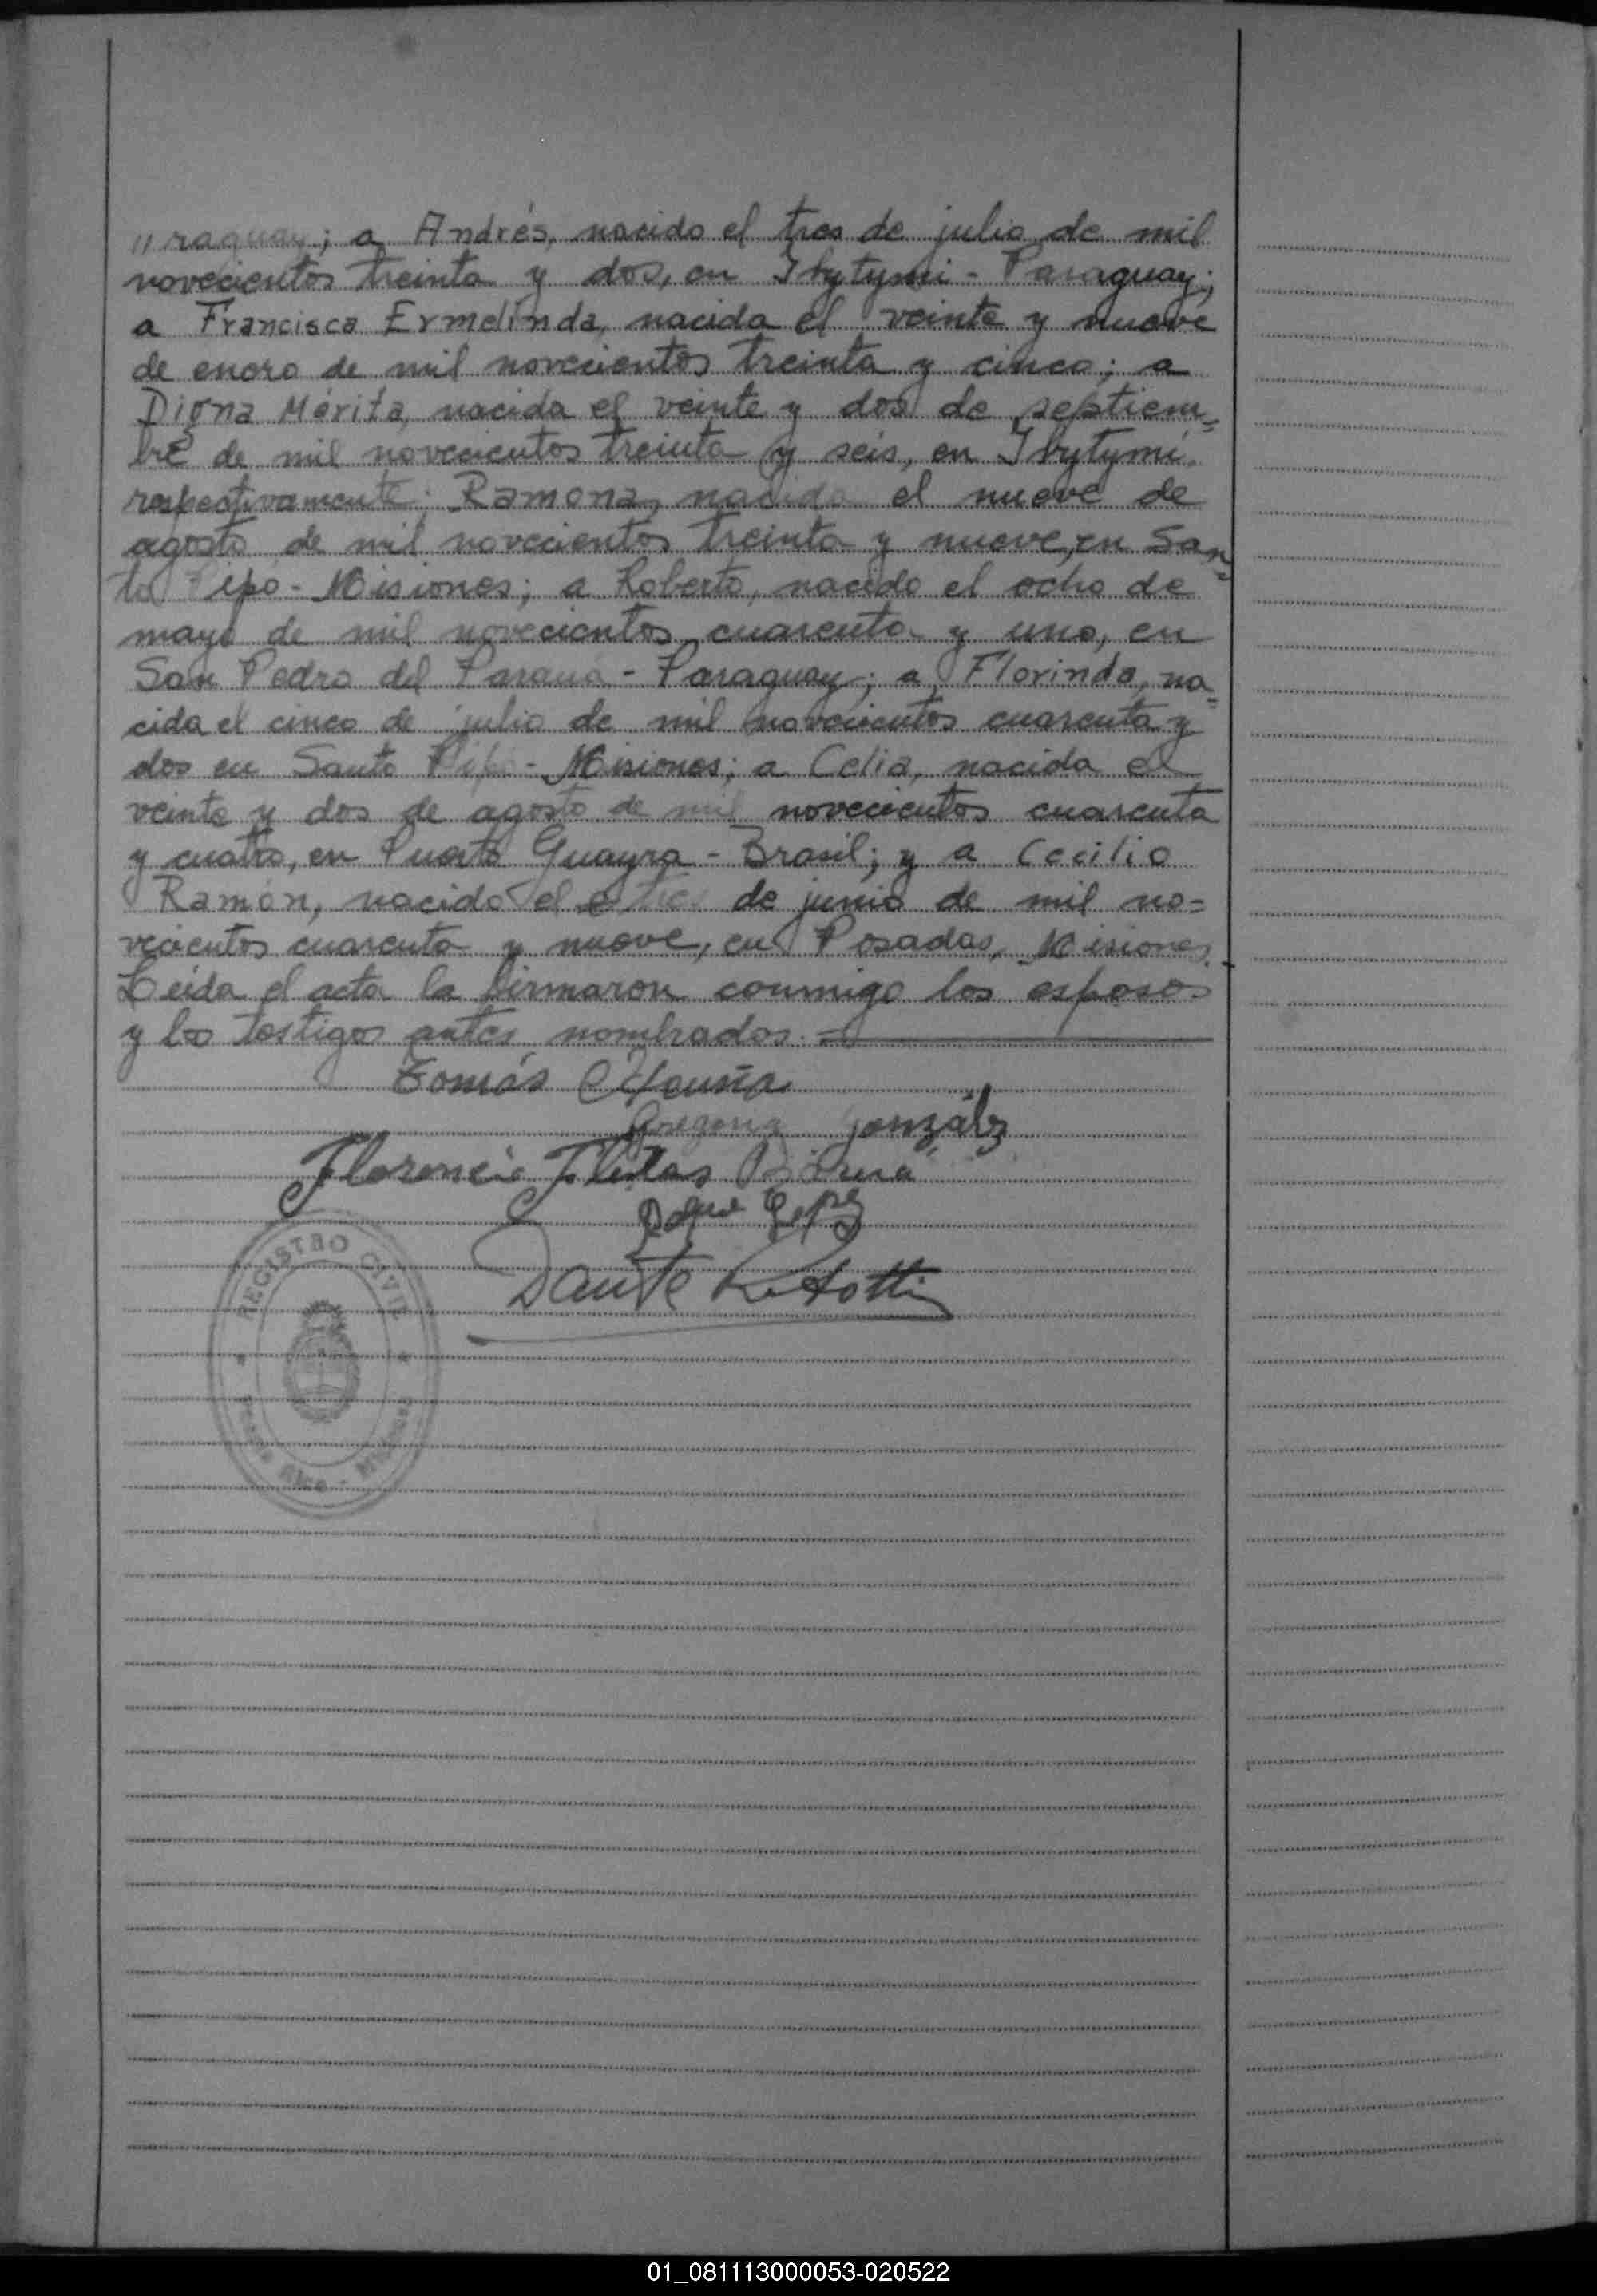 // raguay; a Andrés, nacido el tres de julio de mil
novecientos treinta y dos, en Ibytymi - Paraguay;
a Francisca Ermelinda, nacida el veinte y nueve
de enero de mil novecientos treinta y cinco; a
Digna Mérita, nacida el veinte y dos de septiem=
bre de mil novecientos treinta y seis, en Ibytymi,
respectivamente; Ramona, nacida el nueve de
agosto de mil novecientos treinta y nueve, en San=
to Pipo - Misiones; a Roberto, nacido el ocho de
mayo de mil novecientos cuarenta y uno, en
San Pedro del Paraná - Paraguay; a Florinda, na=
cida el cinco de julio de mil novecientos cuarenta y
dos en Santo Pipo - Misiones; a Celia, nacida el
veinte y dos de agosto de mil novecientos cuarenta
y cuatro, en Puerto Guayra - Brasil; y a Cecilio
Ramón, nacido el tres de junio de mil no=
vecientos cuarenta y nueve, en Posadas, Misiones.
Leída el acta la firmaron conmigo los esposos
y los testigos antes nombrados.
Tomás Acuña
Gregoria Gonzálz
Florencio Fleitas
Roque Lopez
Dante
REGISTRO CIVIL
PUERTO RICO - MISIONES
01_081113000053-020522